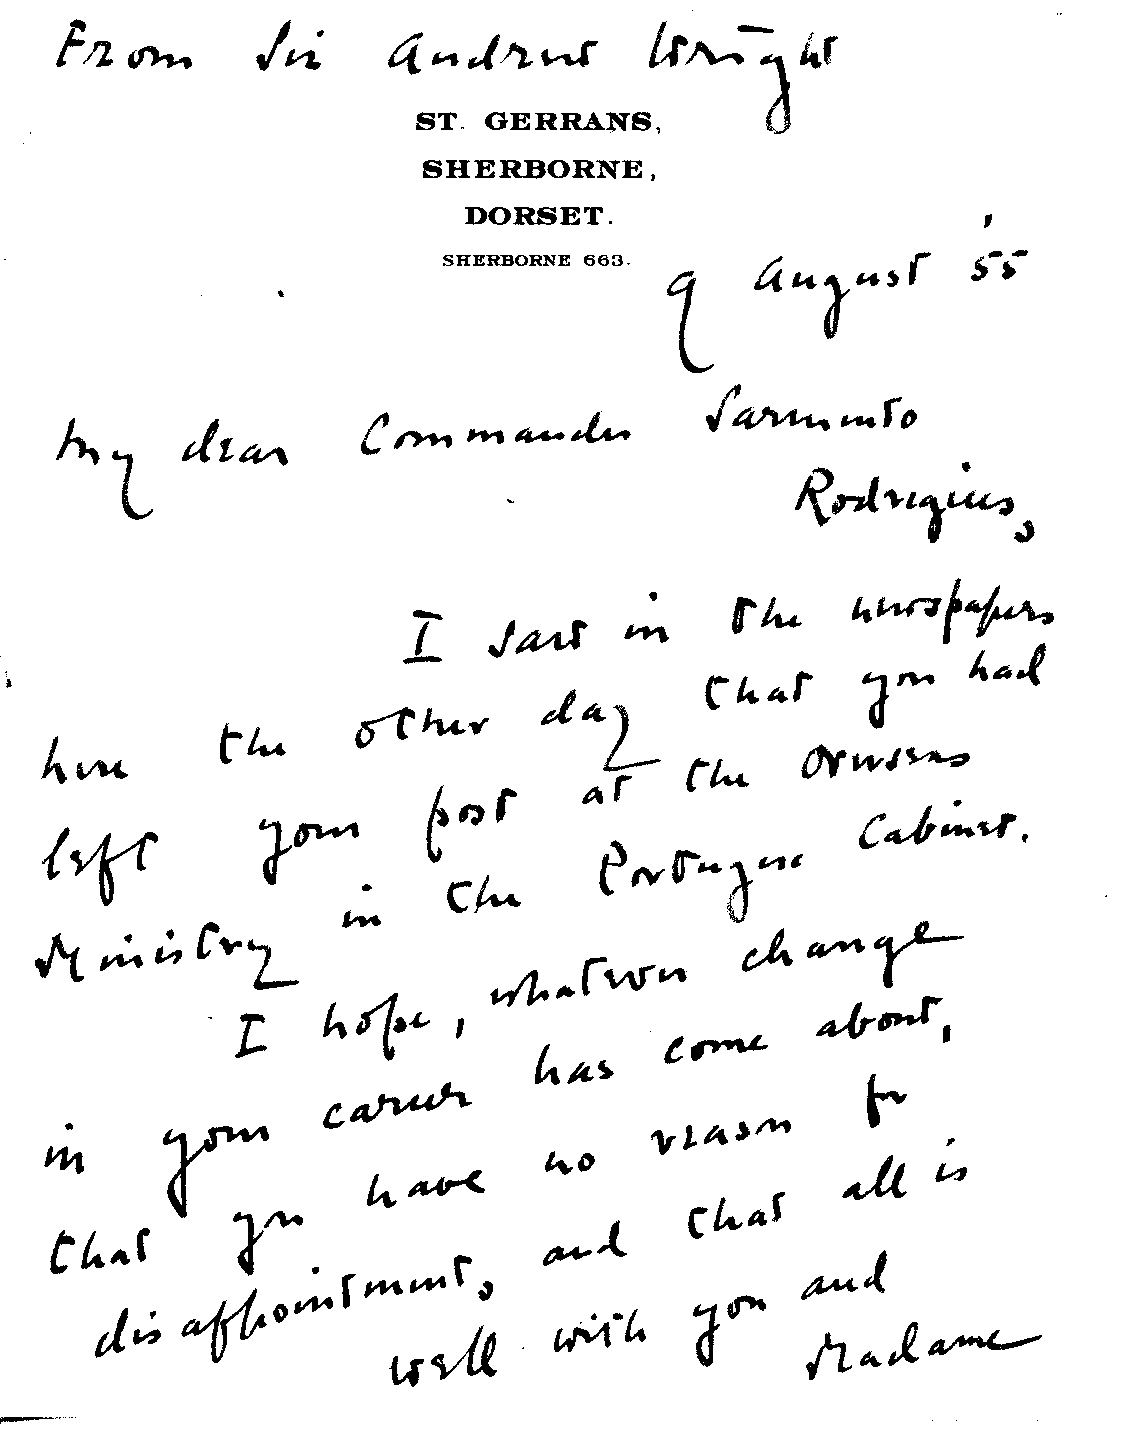 From Sir Andrew Wright
ST. GERRANS,
SHERBORNE,
DORSET.
SHERBORNE 663.
9 August '55
My dear Commander Sarmento
Rodrigues,
I saw in the newspapers
here the other day that you had
left your post at the Overseas
Ministry in the Portuguese Cabinet.
I hope, whatever change
in your career has come about,
that you have no reason for
disappointment, and that all is
well with you and
Madame